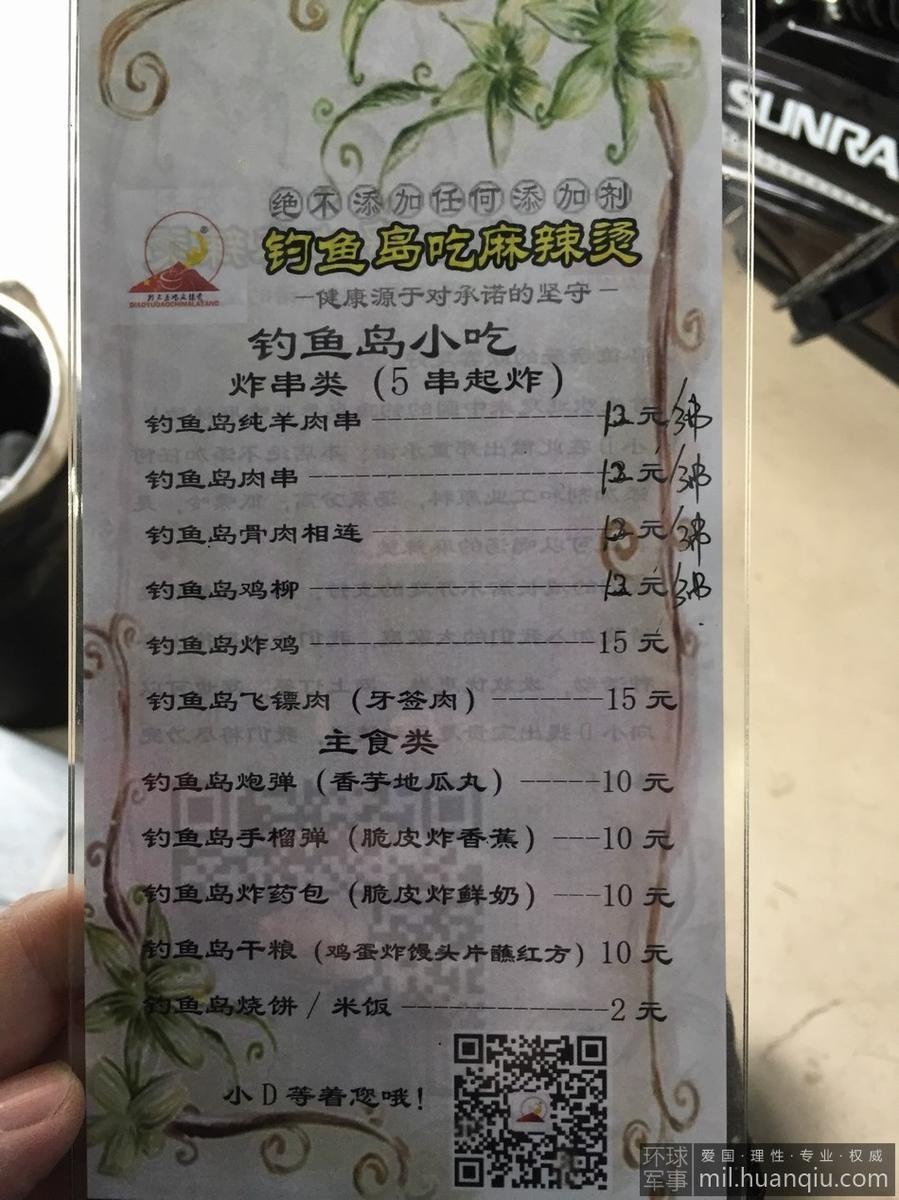 SUNRA
绝不添加任何添加剂
钓鱼岛吃麻辣烫
DIAOYUDAOCHIMALATANG
—健康源于对承诺的坚守—
钓鱼岛小吃
炸串类（5 串起炸）
钓鱼岛纯羊肉串 -------------- 12 元/沸
钓鱼岛肉串 ------------------ 12 元/沸
钓鱼岛骨肉相连 -------------- 12 元/沸
钓鱼岛鸡柳 ------------------ 12 元/沸
钓鱼岛炸鸡 ------------------ 15 元
钓鱼岛飞镖肉（牙签肉）-------15 元
主食类
钓鱼岛炮弹（香芋地瓜丸）-----10 元
钓鱼岛手榴弹（脆皮炸香蕉）---10 元
钓鱼岛炸药包（脆皮炸鲜奶）---10 元
钓鱼岛干粮（鸡蛋炸馒头片蘸红方）10 元
钓鱼岛烧饼 / 米饭 -------------2 元
小 D 等着您哦！
环球军事
爱国·理性·专业·权威
mil.huanqiu.com